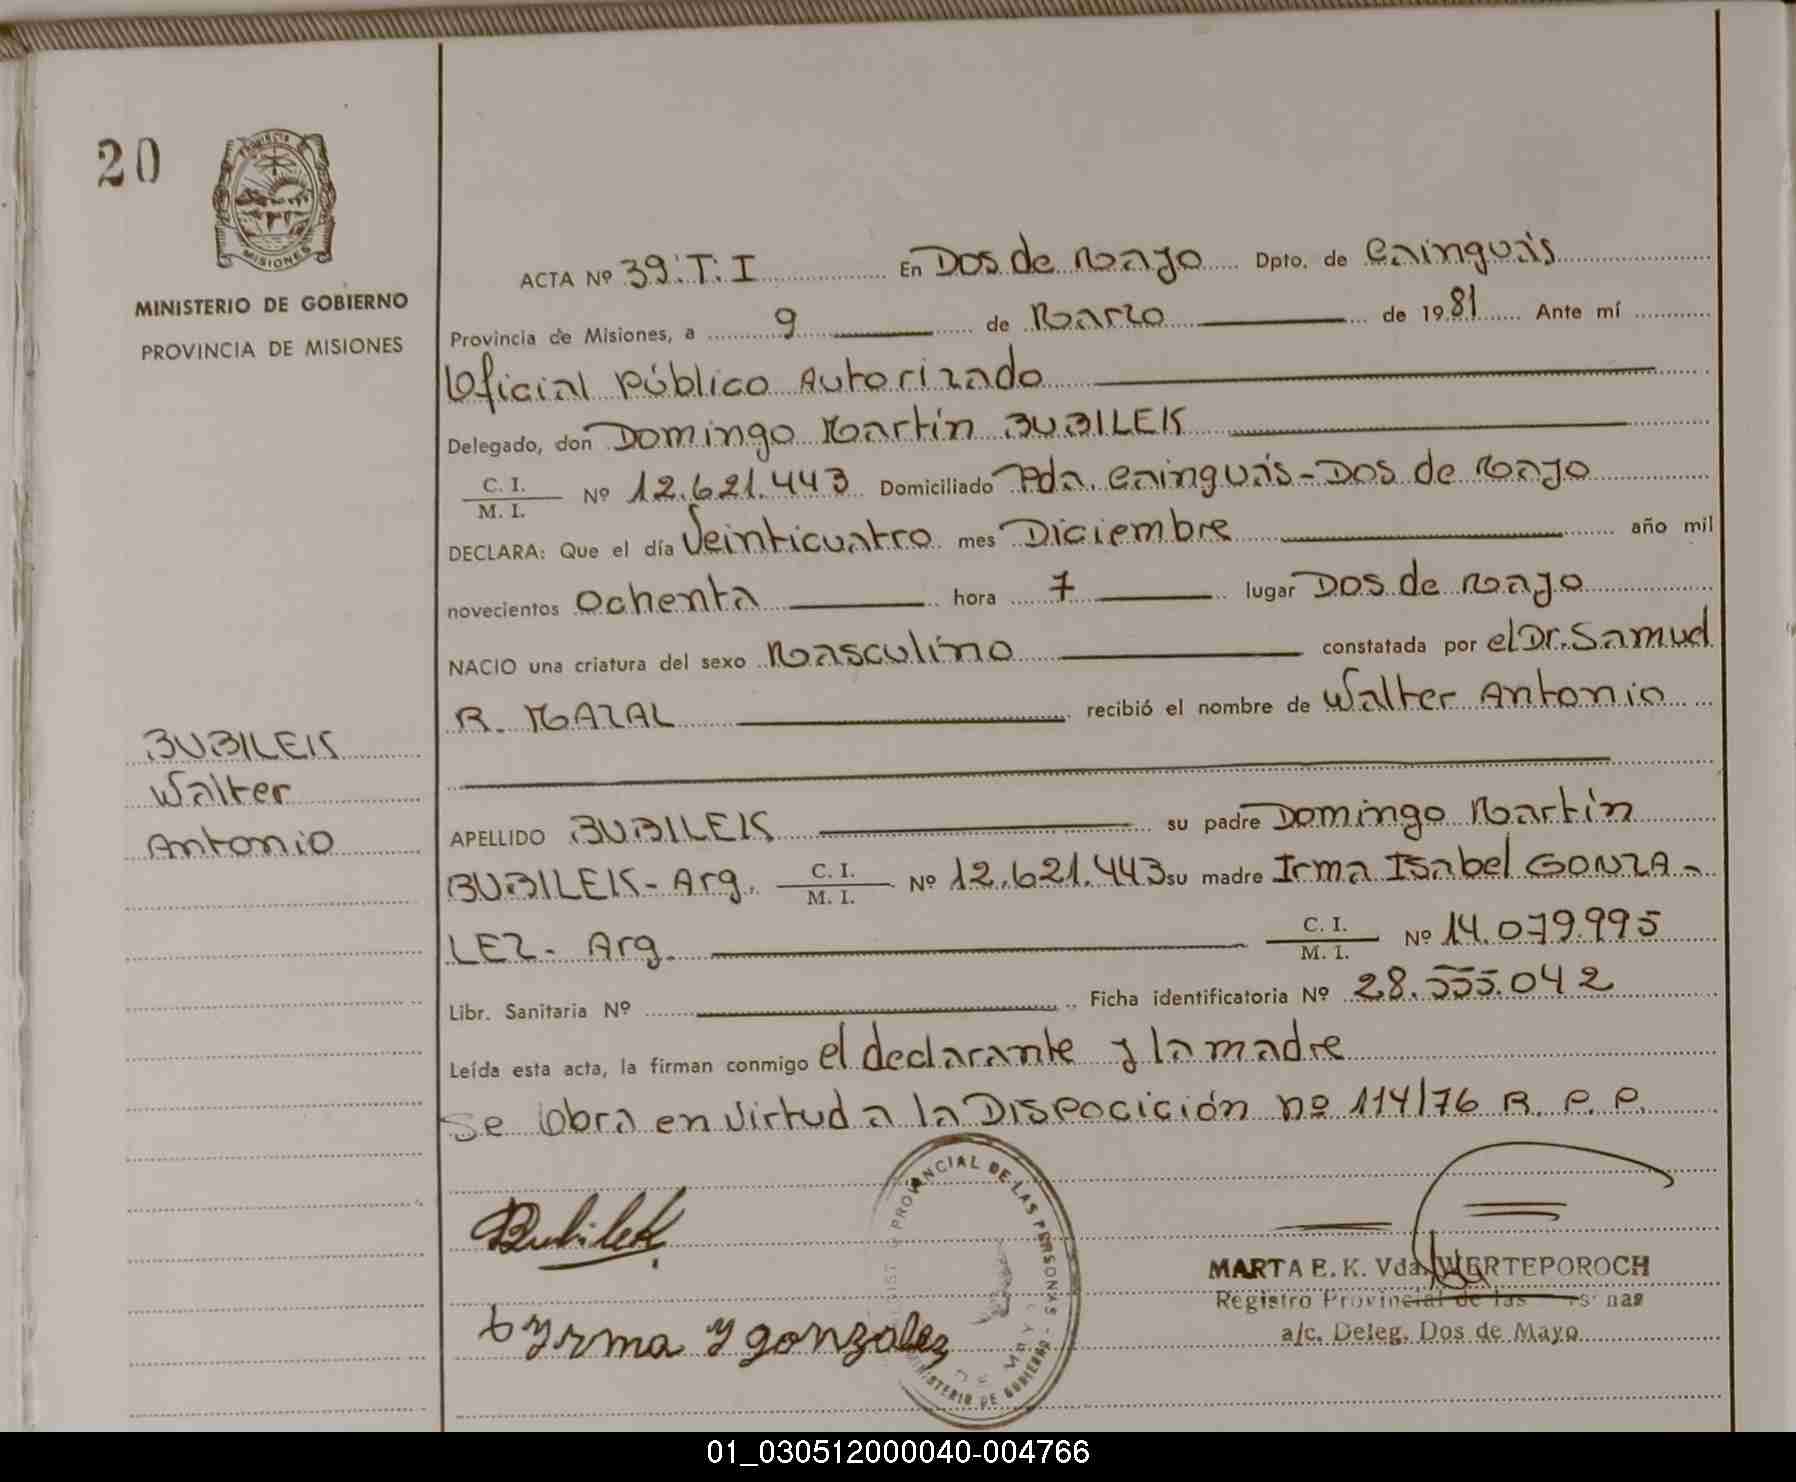 20
PROVINCIA
MISIONES
MINISTERIO DE GOBIERNO
PROVINCIA DE MISIONES
ACTA Nº 39.T.I En Dos de Mayo Dpto. de Cainguás
Provincia de Misiones, a 9 de Marzo de 1981 Ante mí
Oficial Público Autorizado
Delegado, don Domingo Martín BUBILEK
C. I.
M. I. Nº 12.621.443 Domiciliado Pda. Cainguás-Dos de Mayo
DECLARA: Que el día Veinticuatro mes Diciembre año mil
novecientos Ochenta hora 7 lugar Dos de Mayo
NACIO una criatura del sexo Masculino constatada por el Dr. Samud
R. MAZAL recibió el nombre de Walter Antonio
BUBILEK
Walter
Antonio
APELLIDO BUBILEK su padre Domingo Martín
BUBILEK- Arg. C. I.
M. I. Nº 12.621.443 su madre Irma Isabel GONZA-
LEZ- Arg. C. I.
M. I. Nº 14.079.995
Libr. Sanitaria Nº Ficha identificatoria Nº 28.555.042
Leída esta acta, la firman conmigo el declarante y la madre
Se Obra en Virtud a la Dispocición nº 114/76 R. P. P.
Bubilek
yrma y gonzalez
PROVINCIAL DE LAS PERSONAS - MINISTERIO DE GOBIERNO
MARTA E. K. Vda. WERTEPOROCH
Registro Provincial de las
a/c. Deleg. Dos de Mayo
01_030512000040-004766